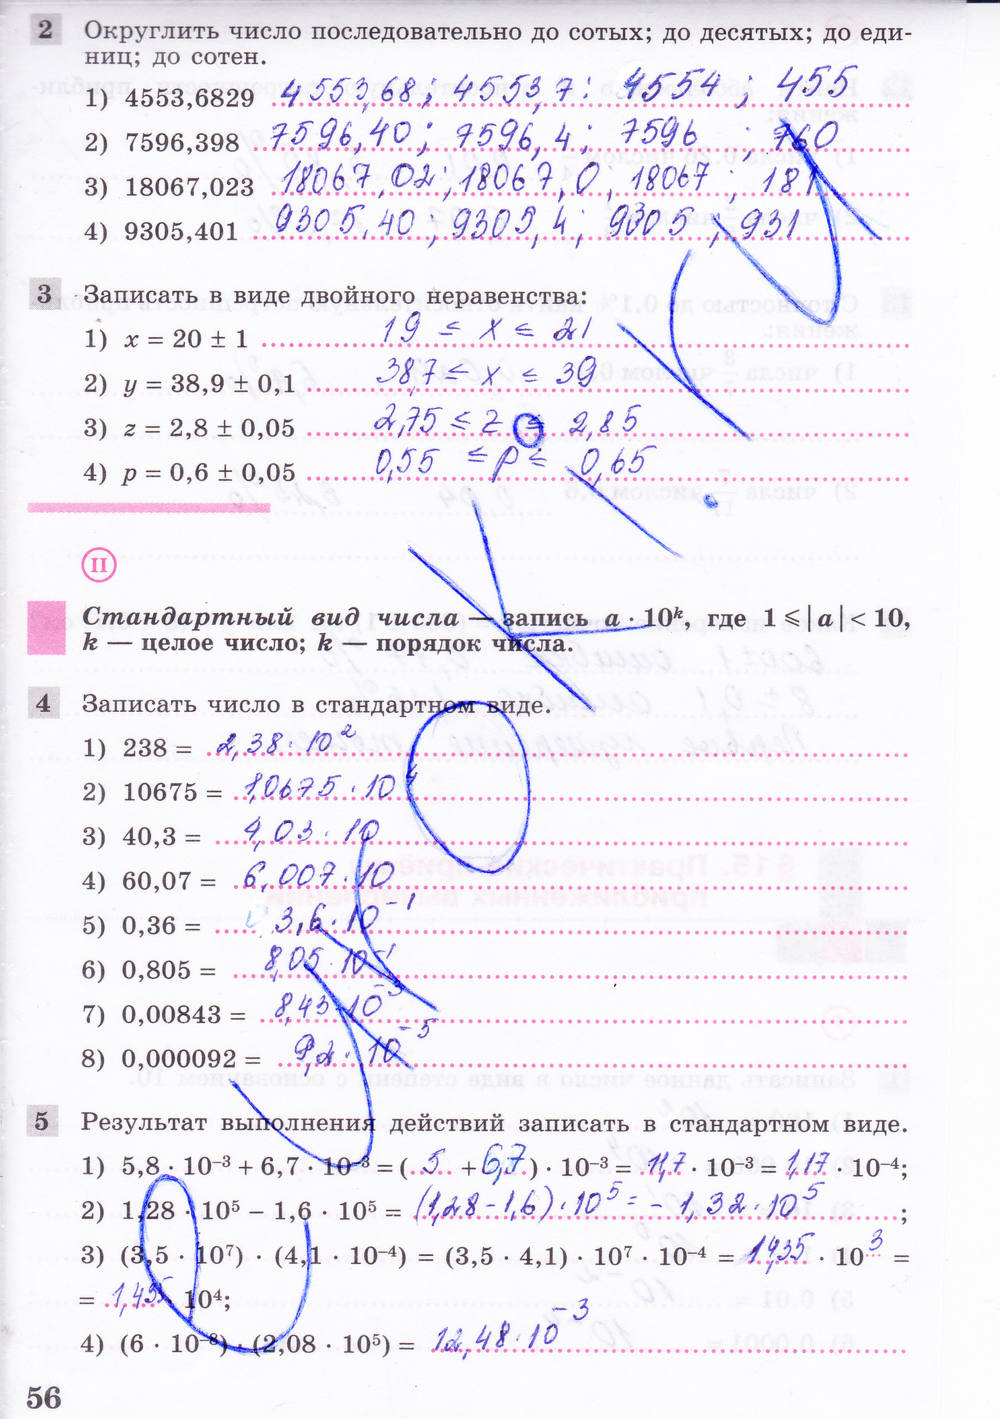 2 Округлить число последовательно до сотых; до десятых; до еди-
ниц; до сотен.
1) 4553,6829 4553,68; 4553,7; 4554; 455
2) 7596,398 7596,40; 7596,4; 7596 ; 760
3) 18067,023 18067,02; 18067,0; 18067; 181
4) 9305,401 9305,40; 9305,4; 9305; 931
3 Записать в виде двойного неравенства:
1) x = 20 ± 1 19 ≤ x ≤ 21
2) y = 38,9 ± 0,1 38,7 ≤ x ≤ 39
3) z = 2,8 ± 0,05 2,75 ≤ z ≤ 2,85
4) p = 0,6 ± 0,05 0,55 ≤ p ≤ 0,65
II
Стандартный вид числа — запись a · 10ᵏ, где 1 ⩽ |a| < 10,
k — целое число; k — порядок числа.
4 Записать число в стандартном виде.
1) 238 = 2,38 · 10²
2) 10675 = 1,0675 · 10⁴
3) 40,3 = 4,03 · 10
4) 60,07 = 6,007 · 10
5) 0,36 = 3,6 · 10⁻¹
6) 0,805 = 8,05 · 10⁻¹
7) 0,00843 = 8,43 · 10⁻³
8) 0,000092 = 9,2 · 10⁻⁵
5 Результат выполнения действий записать в стандартном виде.
1) 5,8 · 10⁻³ + 6,7 · 10⁻³ = (5 + 6,7) · 10⁻³ = 11,7 · 10⁻³ = 1,17 · 10⁻⁴;
2) 1,28 · 10⁵ − 1,6 · 10⁵ = (1,28 − 1,6) · 10⁵ = − 1,32 · 10⁵ ;
3) (3,5 · 10⁷) · (4,1 · 10⁻⁴) = (3,5 · 4,1) · 10⁷ · 10⁻⁴ = 14,35 · 10³ =
= 1,435 · 10⁴;
4) (6 · 10⁻⁸) · (2,08 · 10⁵) = 12,48 · 10⁻³
56